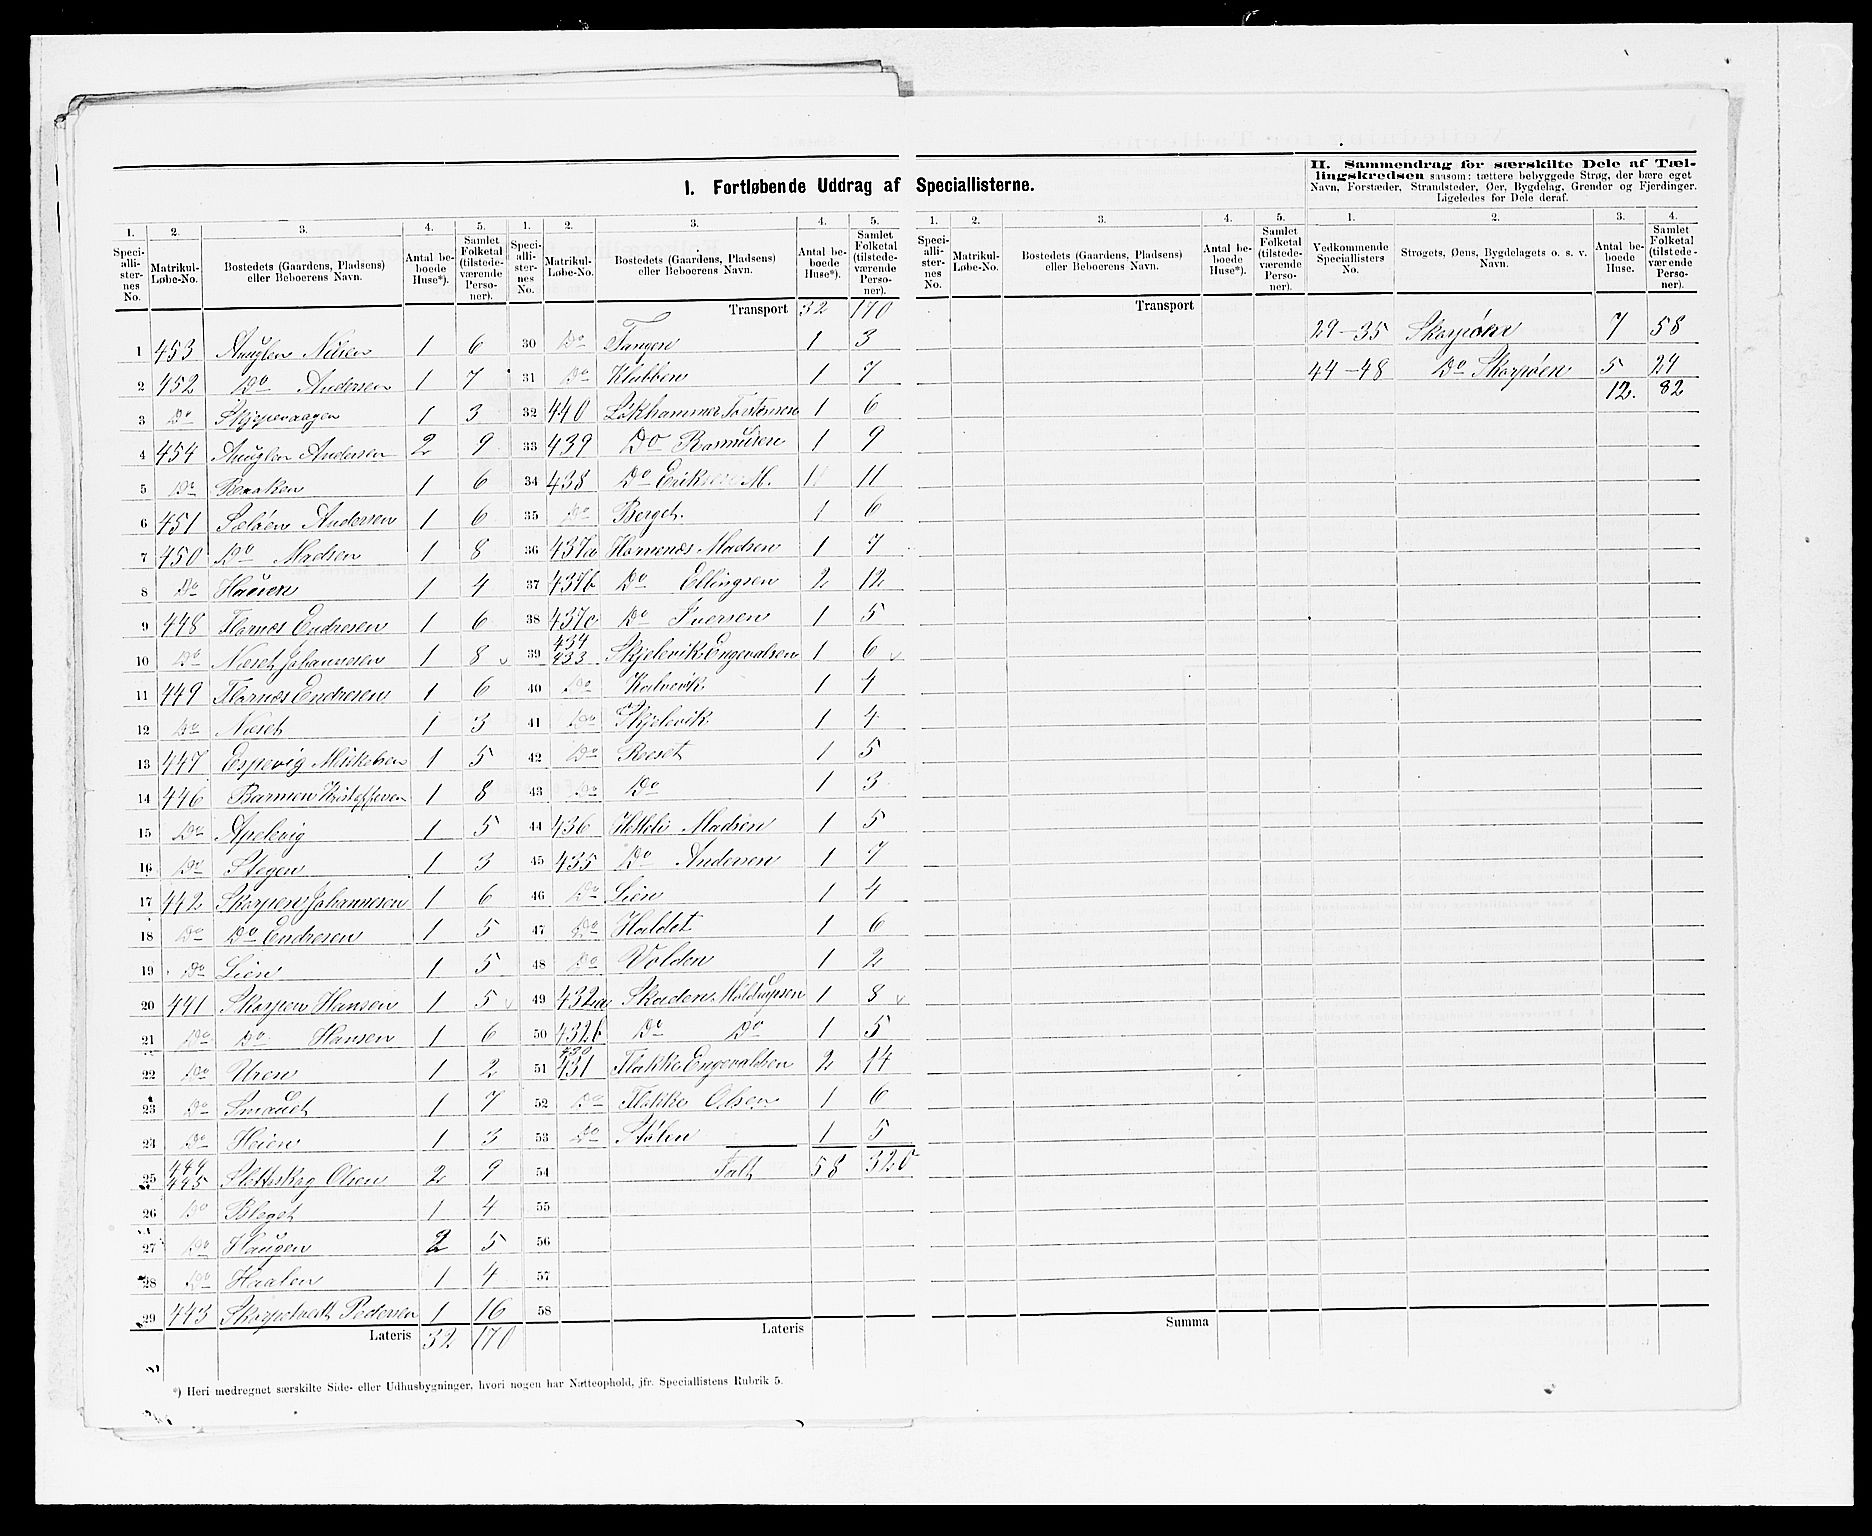 I. Fortløbende Uddrag af Speciallisterne.
II. Sammendrag for særskilte Dele af Tæl-
lingskredsen saasom: tættere bebyggede Strøg, der bære eget
Navn, Forstæder, Strandsteder, Øer, Bygdelag, Grender og Fjerdinger.
Ligeledes for Dele deraf.
1. 2. 3. 4. 5. 1. 2. 3. 4. 5. 1. 2. 3. 4. 5. 1. 2. 3. 4.
Speci-alli-ster-nes No. Matrikul-Løbe-No. Bostedets (Gaardens, Pladsens) eller Beboerens Navn. Antal be-boede Huse*). Samlet Folketal (tilstede-værende Perso-ner).
Speci-alli-ster-nes No. Matrikul-Løbe-No. Bostedets (Gaardens, Pladsens) eller Beboerens Navn. Antal be-boede Huse*). Samlet Folketal (tilstede-værende Perso-ner).
Speci-alli-ster-nes No. Matrikul-Løbe-No. Bostedets (Gaardens, Pladsens) eller Beboerens Navn. Antal be-boede Huse*). Samlet Folketal (tilstede-værende Perso-ner).
Vedkommende Speciallisters No. Strøgets, Øens, Bygdelagets o. s. v. Navn. Antal be-boede Huse. Samlet Folketal (tilstede-værende Perso-ner).
1 453 Nilsen 1 6
2 452 Do Andersen 1 7
3 Do 1 3
4 454 Andersen 2 9
5 Do Bakken 1 6
6 451 Sæløen Andersen 1 6
7 450 Do Madsen 1 8
8 Do 1 4
9 448 Flornæs Endresen 1 6
10 Do Næset Johannesen 1 8
11 449 Flornæs Endresen 1 6
12 Do Næset 1 3
13 447 Espevig Mikkelsen 1 5
14 446 Barmen Kristoffersen 1 8
15 Do Apelvig 1 5
16 Do Stegen 1 3
17 442 Skorpen Johannesen 1 6
18 Do Do Endresen 1 5
19 Do Lien 1 5
20 441 Skorpen Hansen 1 5
21 Do Do Hansen 1 6
22 Do Uren 1 2
23 Do 1 7
24 Do Heien 1 3
25 444 445 Sletteskog Olsen 2 9
26 Do 1 4
27 Do Haugen 2 5
28 Do 1 4
29 443 Pedersen 1 16
Lateris 32 170
Transport 32 170
30 Do Tangen 1 3
31 Do Klubben 1 7
32 440 Løkhammer 1 6
33 439 Do Rasmusen 1 9
34 438 Do Eriksen M. 1 11
35 Do Berget. 1 6
36 437a Hornenæs Madsen 1 7
37 437b Do Ellingsen 2 12
38 437c Do Iversen 1 5
39 434 433 Skjelevik Engevalsen 1 6
40 Do Kalvevik 1 4
41 Do Skjelevik 1 4
42 Do Reeset 1 5
43 Do Do 1 3
44 436 Madsen 1 5
45 435 Do Andersen 1 7
46 Do Lien 1 4
47 Do Haldet 1 6
48 Do Volden 1 2
49 432a Skaden 1 8
50 432b Do Do 1 5
51 430 431 Flokke Engevaldsen 2 14
52 Do Flokke Olsen 1 6
53 Do Stølen 1 5
54 Ialt 58 326
55
56
57
58
Lateris
Transport
Summa
29–35 Skorpøen 7 58
44–48 Do Skorpøen 5 24
12. 82
*) Heri medregnet særskilte Side- eller Udhusbygninger, hvori nogen har Natteophold, jfr. Speciallistens Rubrik 5.